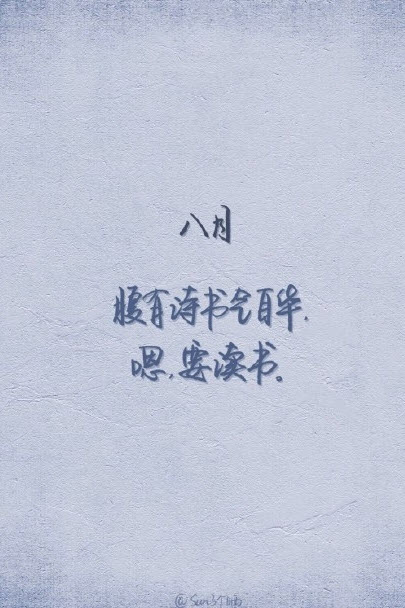 八月
腹有诗书气自华.
嗯.要读书。